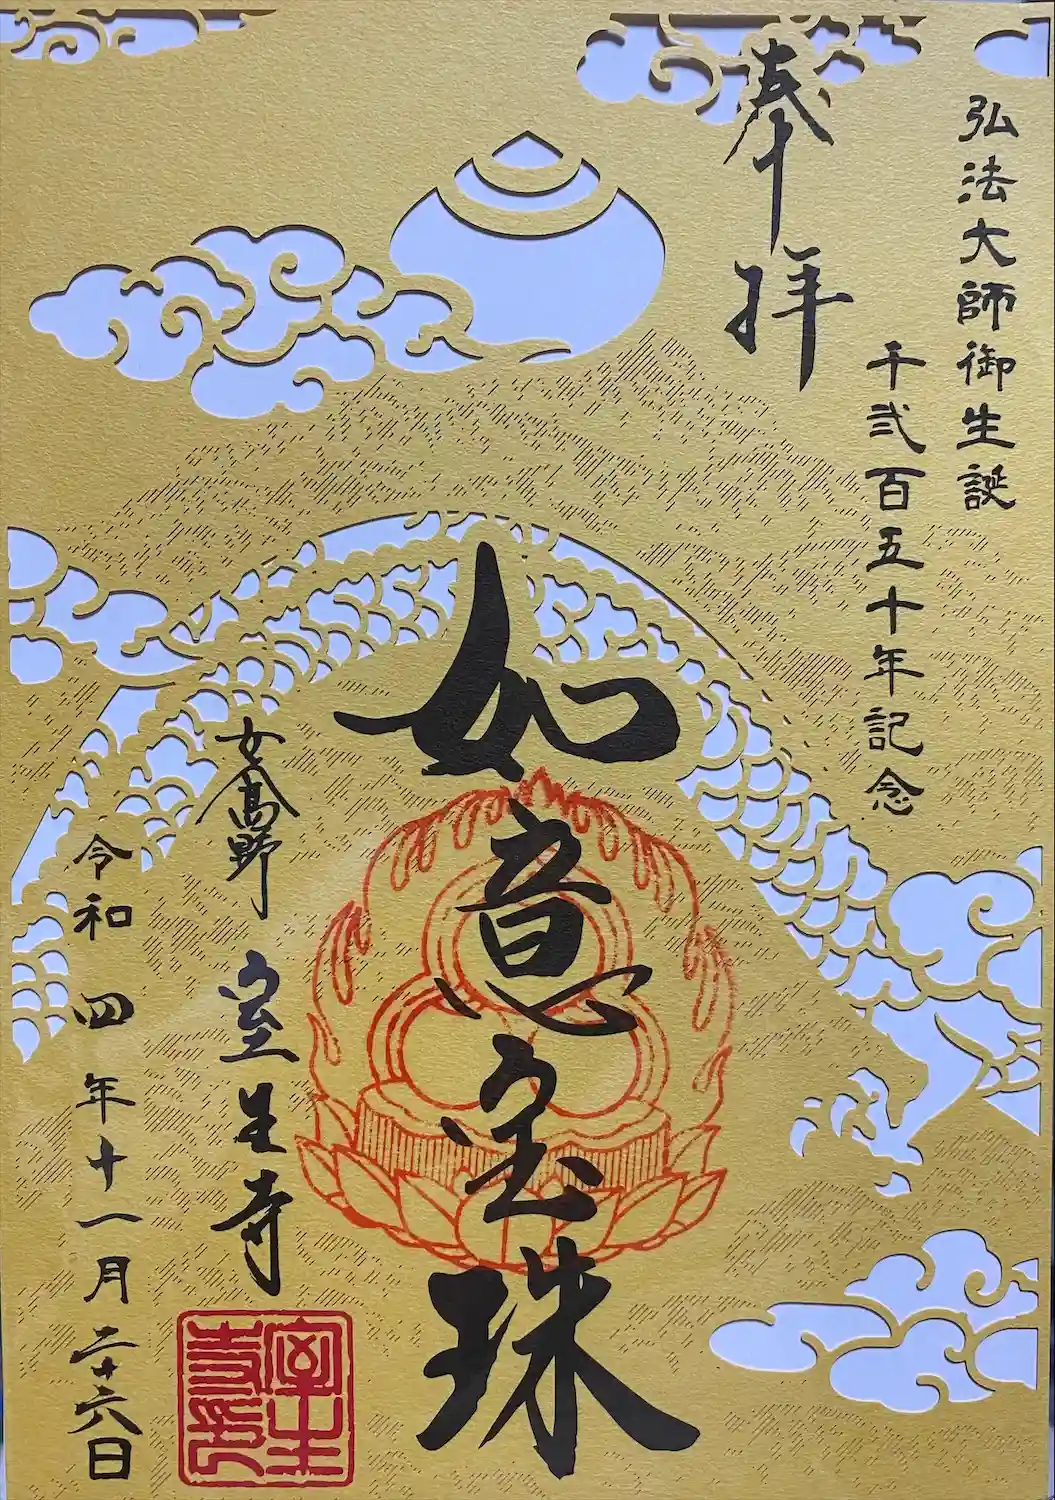 弘法大師御生誕
千弐百五十年記念
奉拝
如意宝珠
女高野 室生寺
令和四年十一月二十六日
室生寺印